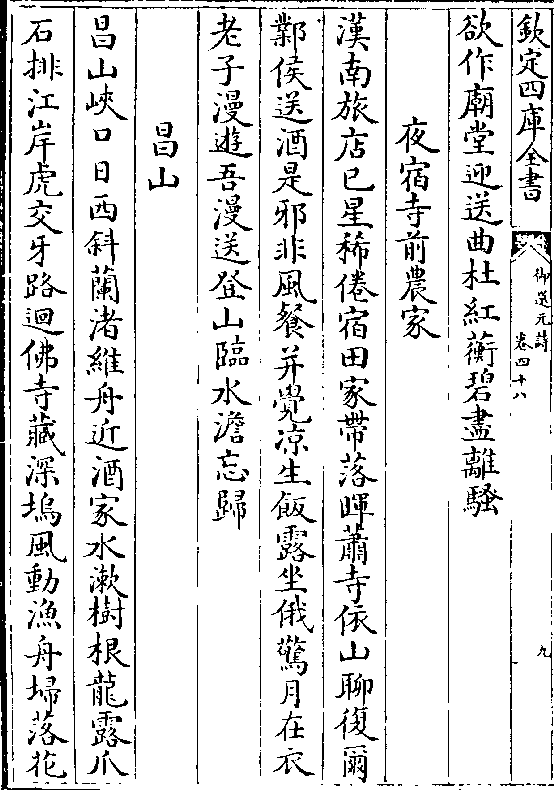 欽定四庫全書
御選元詩
卷四十八
九
欲作廟堂迎送曲杜紅蘅碧盡離騷
夜宿寺前農家
漢南旅店已星稀倦宿田家帶落暉蕭寺依山聊復爾
鄴侯送酒是邪非風餐并覺凉生飯露坐俄驚月在衣
老子漫遊吾漫送登山臨水澹忘歸
昌山
昌山峽口日西斜蘭渚維舟近酒家水漱樹根龍露爪
石排江岸虎交牙路迴佛寺藏深塢風動漁舟埽落花